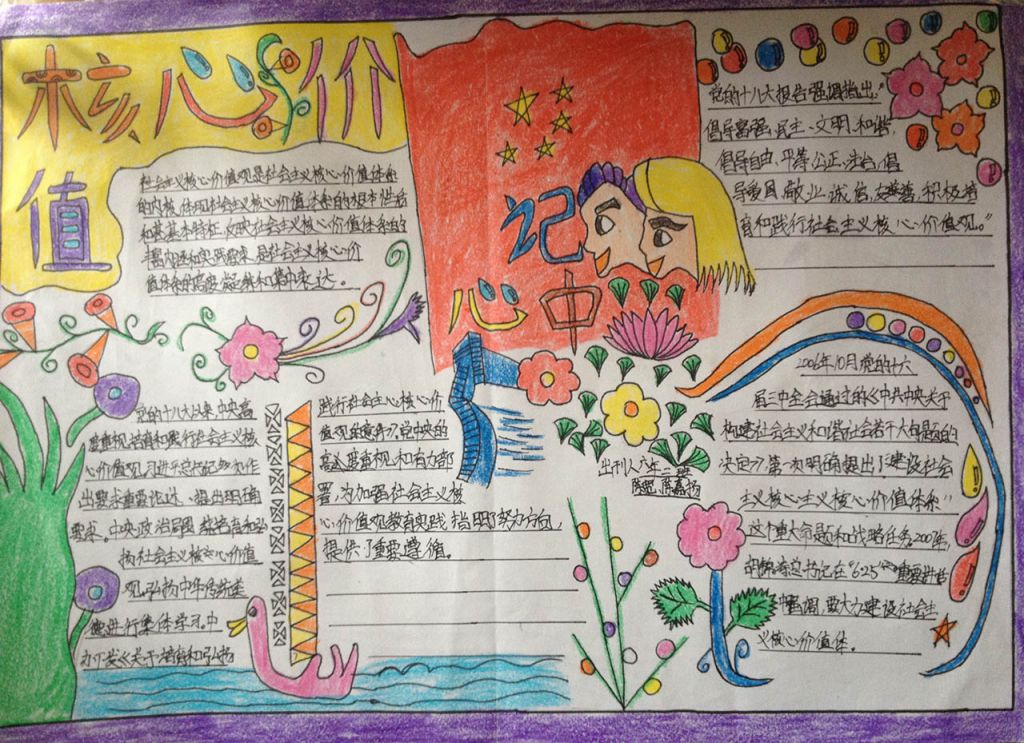 核心价
值
记
心中
社会主义核心价值观是社会主义核心价值体系
的内核,体现社会主义核心价值体系的根本性质
和基本特征,反映社会主义核心价值体系的
丰富内涵和实践要求,是社会主义核心价
值体系的高度凝练和集中表达。
党的十八大报告强调指出,"
倡导富强、民主、文明、和谐,
倡导自由、平等、公正、法治,倡
导爱国、敬业、诚信、友善,积极培
育和践行社会主义核心价值观。"
党的十八大以来,中央高
度重视培育和践行社会主义核
心价值观。习近平总书记多次作
出重要论述、提出明确
要求。中央政治局围绕培育和弘
扬社会主义核心价值
观、弘扬中华传统美
德进行集体学习。中
办下发《关于培育和弘扬
践行社会主义核心价
值观的意见》。党中央的
高度重视和有力部
署,为加强社会主义核
心价值观教育实践指明了努力方向,
提供了重要遵循。
出刊人六年二班
2006年10月,党的十六
届三中全会通过的《中共中央关于
构建社会主义和谐社会若干大问题的
决定》,第一次明确提出了"建设社会
主义核心主义核心价值体系"
这个重大命题和战略任务。2007年,
胡锦涛总书记在"6·25"重要讲话
中强调,要大力建设社会主
义核心价值体。